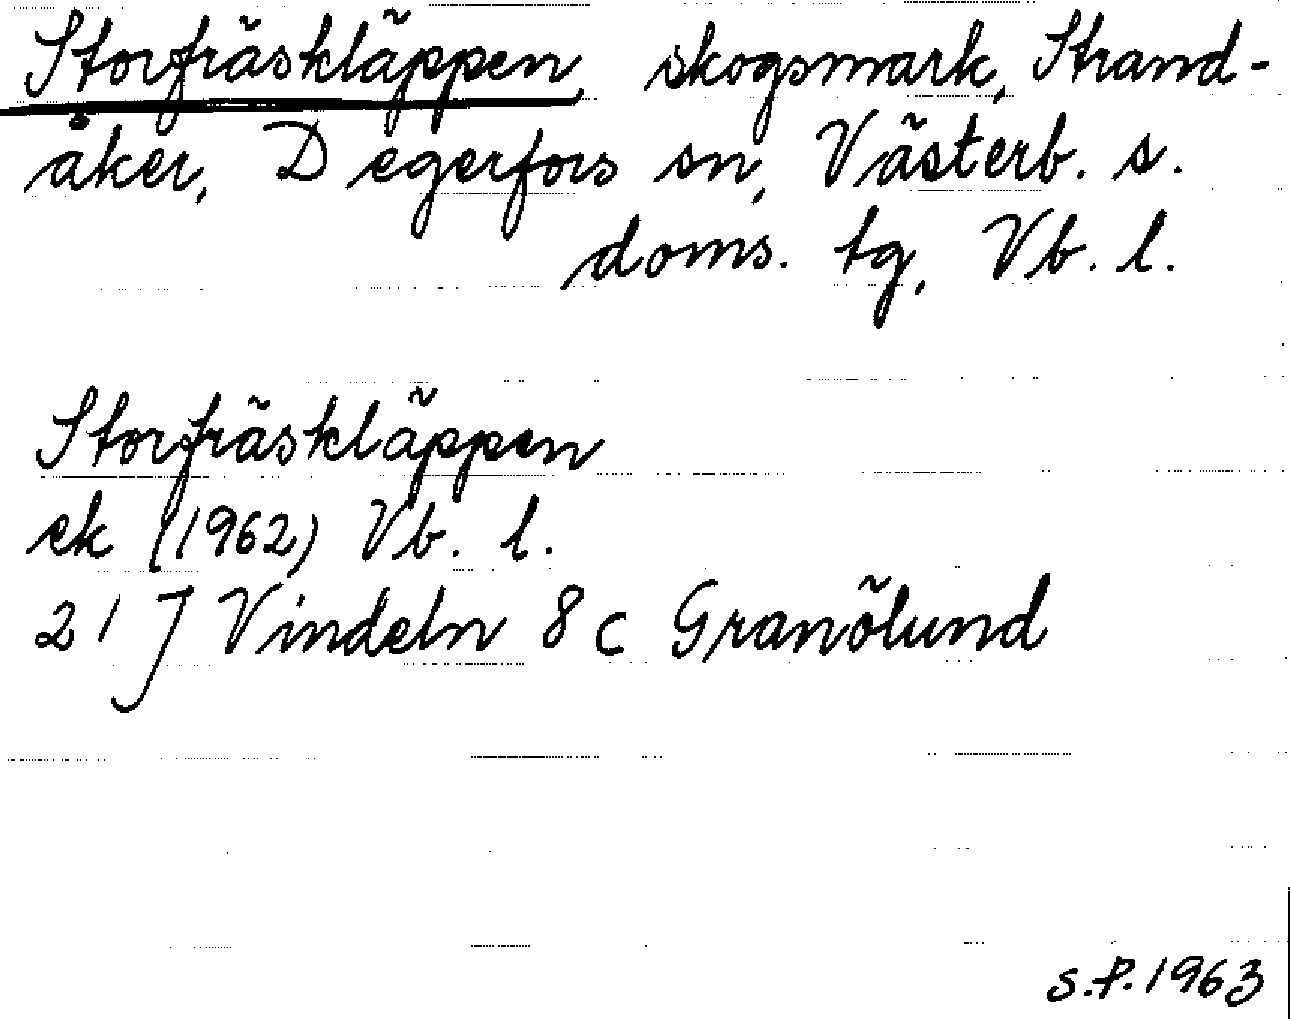 Storfräskläppen, skogsmark, Strand-
åker, Degerfors sn, Västerb. s.
doms. tg, Vb. l.
Storfräskläppen
ek (1962) Vb. l.
21 J Vindeln 8 c Granölund
S.P. 1963